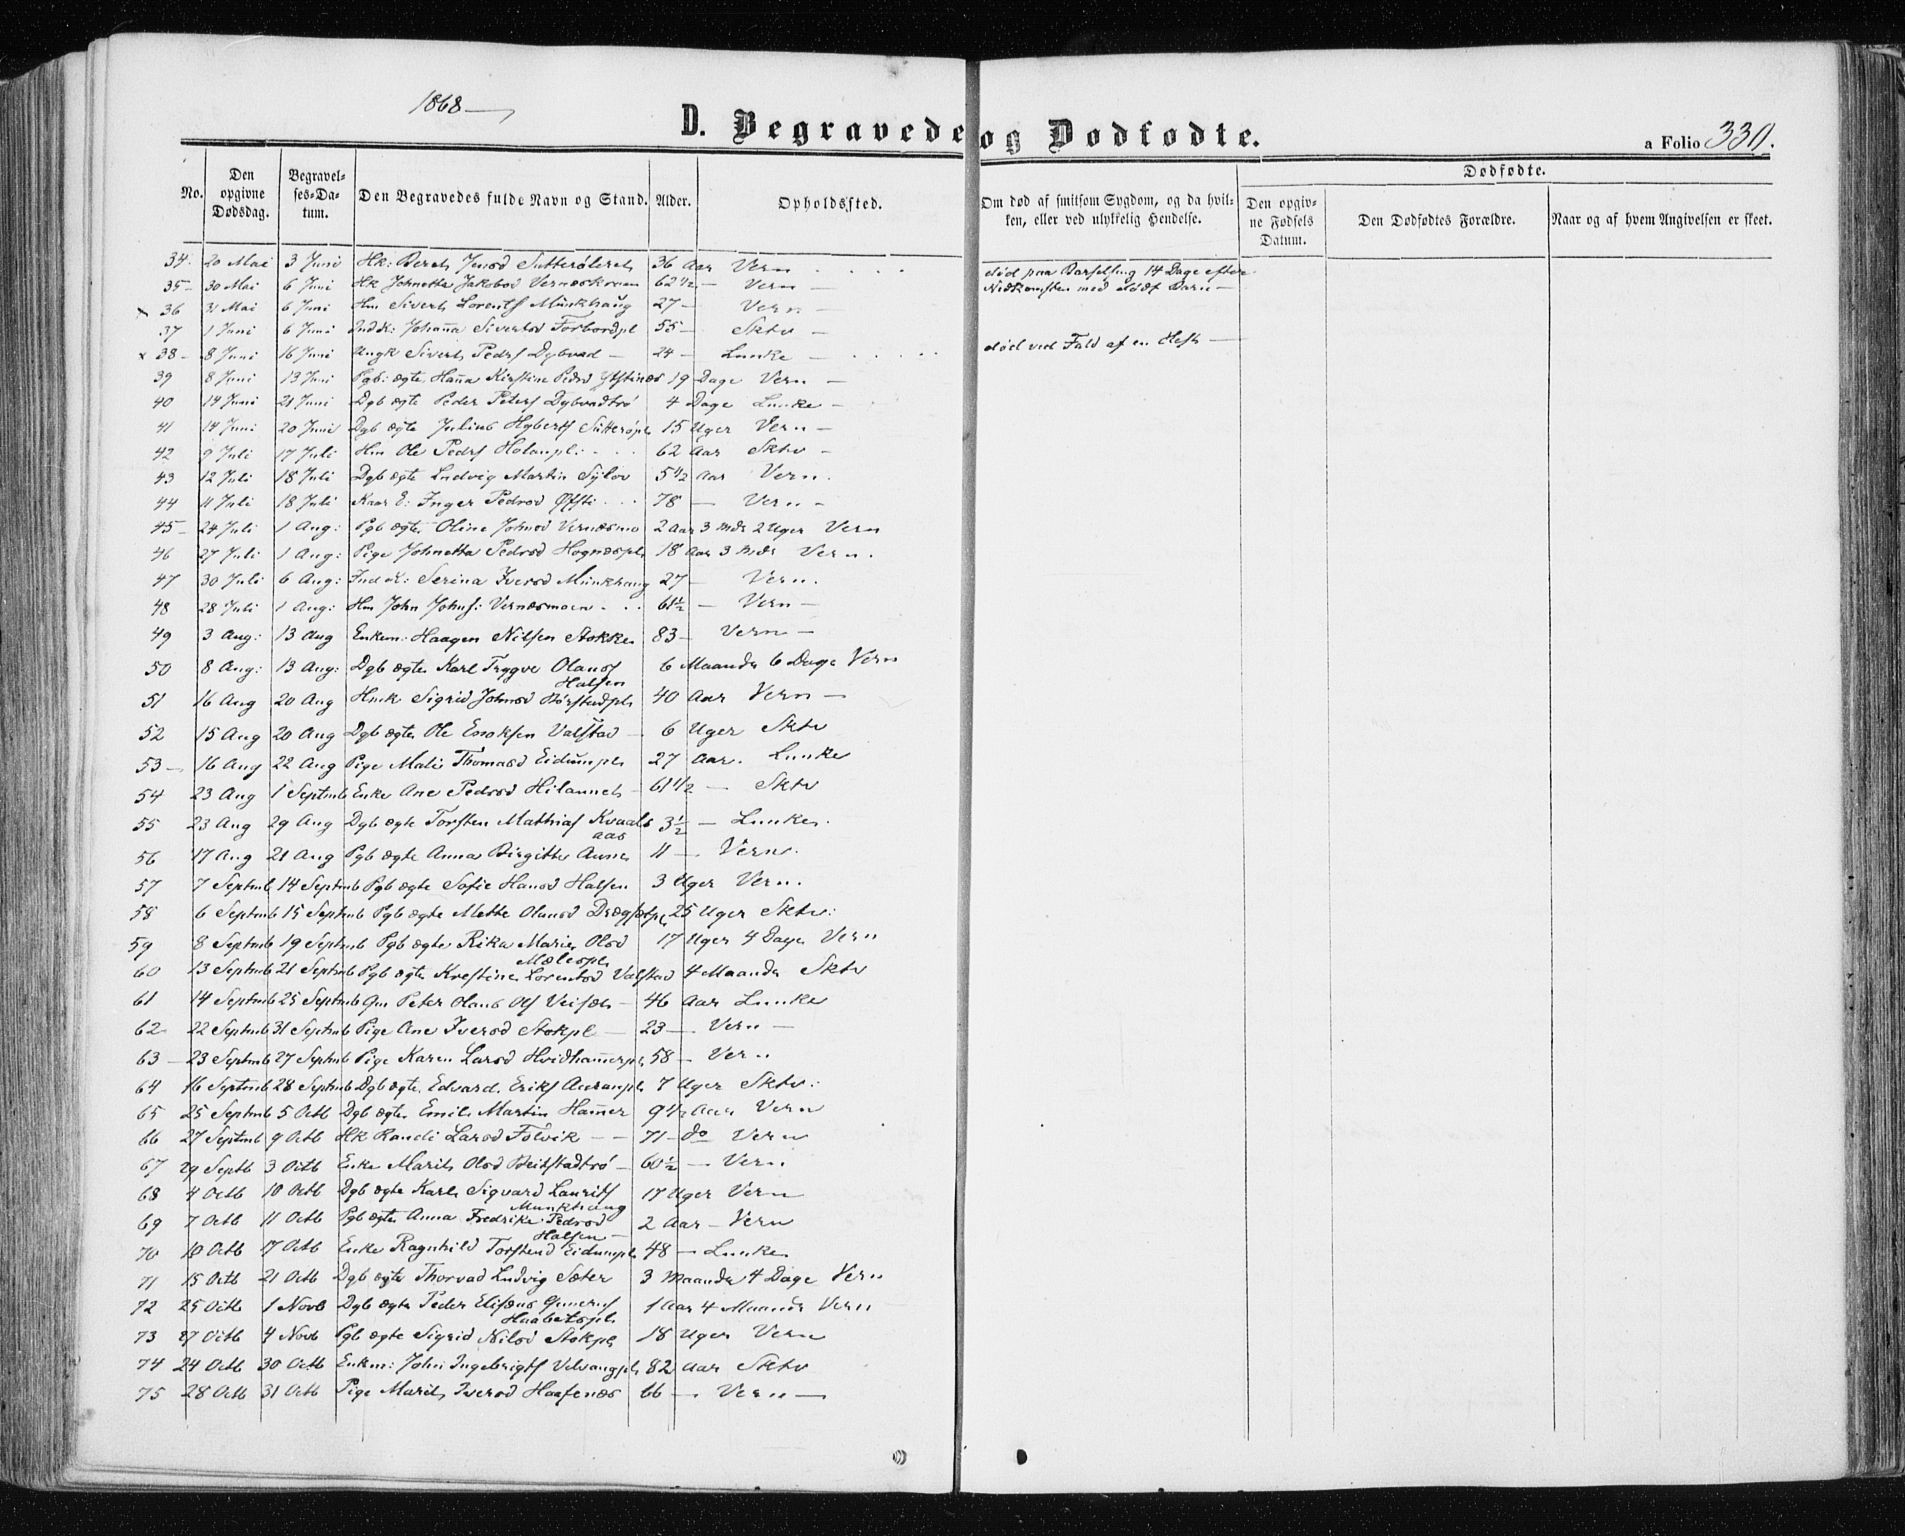 1868
D. Begravede og Dødfødte.
a Folio 330.
No.
Den opgivne Dødsdag.
Begravelses-Datum.
Den Begravedes fulde Navn og Stand.
Alder.
Opholdssted.
Om død af smitsom Sygdom, og da hvilken, eller ved ulykkelig Hendelse.
Dødfødte.
Den opgivne Fødsels Datum.
Den Dødfødtes Forældre.
Naar og af hvem Angivelsen er skeet.
34 20 Mai 3 Juni Hk: Bereth Jensd 36 Aar Vern død paa Barselseng 14 Dage efter
35 30 Mai 6 Juni Hk Johnetta Jakobsd 62 1/2 — Vern — Nedkomsten med dødf Barn —
x 36 31 Mai 6 Juni Hm Sivert Lorents Munkhaug 27 — Vern —
37 1 Juni 6 Juni Ind. K: Johanna Sivertsd Forbordpl 55 — Sktv —
x 38 — 8 Juni 16 Juni Ungk Sivert Peders Dybvad — 24 — Lunke — død ved Fald af en Hest —
39 8 Juni 13 Juni Pgb: ægte Hanna Kirstine Pedrsd 19 Dage Vern —
40 14 Juni 21 Juni Dgb ægte Peder Peters Dybvadtrø 4 Dage Lunke —
41 14 Juni 20 Juni Dgb ægte Julius 15 Uger Vern —
42 9 Juli 17 Juli Hm Ole Peders 62 Aar Sktv —
43 12 Juli 18 Juli Dgb ægte Ludvig Martin 5 1/2 Aar Vern.
44 11 Juli 18 Juli Kaar E: Inger Pedrsd Øfsti 78 — Vern —
45 — 24 Juli 1 Aug: Pgb ægte Oline Johnsd Vernæsmo 2 Aar 3 Mdr 2 Uger Vern
46 27 Juli 1 Aug: Pige Johnetta Pedrsd 18 Aar 3 Mdr Vern.
47 30 Juli 6 Aug: Ind. K: Serina Iversd Munkhaug 27 — Vern.
48 28 Juli 1 Aug: Hm John Johns: Vernæsmoen 61 1/2 — Vern —
49 3 Aug: 13 Aug Enkem: Haagen Nilsen Stokke 83 — Vern —
50 8 Aug: 13 Aug: Dgb ægte Karl Trygve Olaus Halsen 6 Maander 6 Dage Vern
51 16 Aug 20 Aug Hmk Sigrid Johnsd 40 Aar Vern —
52 15 Aug 20 Aug Dgb ægte Ole Enoksen Valstad — 6 Uger Sktv
53 — 16 Aug 22 Aug Pige Mali Thomasd Eidumpl 27 Aar. Lunke
54 23 Aug 1 Septmb Enke Ane Pedrsd — 61 1/2 — Sktv
55 23 Aug 29 Aug Dgb ægte Torsten Mathias Kvaalsaas 3 1/2 — Lunke.
56 17 Aug 21 Aug Pgb ægte Anna Birgitte Aune 11 — Vern.
57 7 Septmb 14 Septmb Pgb ægte Sofie Hansd Halsen 3 Uger Vern.
58 6 Septmb 15 Septmb Pgb ægte Mette Olausd 25 Uger Sktv:
59 8 Septmb 19 Septmb Pgb ægte Rika Marie Olsd 17 Uger 4 Dage Vern
60 13 Septmb 21 Septmb Pgb ægte Krestine Lorentsd Valstad 4 Maander Sktv
61 14 Septmb 25 Septmb Gm Peter Olaus Ols — 46 Aar Lunke
62 22 Septmb 31 Septmb Pige Ane Iversd Stokpl — 23 — Vern —
63 — 23 Septmb 27 Septmb Pige Karen Larsd Hvidhammerpl 58 — Vern
64 16 Septmb 28 Septmb Dgb ægte Edvard Eriks Auranpl 7 Uger Sktv:
65 25 Septmb 5 Octb Dgb ægte Emil Martin Hammer 9 1/2 Aar Vern
66 27 Septmb 9 Octb Hk Randi Larsd Folvik — — 71 — do Vern
67 29 Septb 3 Octb Enke Marit Olsd — 60 1/2 — Vern
68 4 Octb 10 Octb Dgb ægte Karl Sigvard Laurits Munkhaug 17 Uger Vern
69 7 Octb 11 Octb Pgb ægte Anna Fredrike Pedrsd Halsen — 2 Aar — Vern
70 10 Octb 17 Octb Enke Ragnhild Torstensd Eidumpl 48 — Lunke
71 15 Octb 21 Octb Dgb ægte Thorvad Ludvig Sæter 3 Maander 4 Dage Vern
72 25 Octb 1 Novb Dgb ægte Peder Elisæus Gunerius 1 Aar 4 Maander Vern
73 27 Octb 4 Novb Pgb ægte Sigrid Nilsd Stokpl 18 Uger Vern
74 24 Octb 30 Octb Enkm: John Ingebrigts Velvangpl 82 Aar Sktv
75 28 Octb 31 Octb Pige Marit Iversd 66 — Vern —